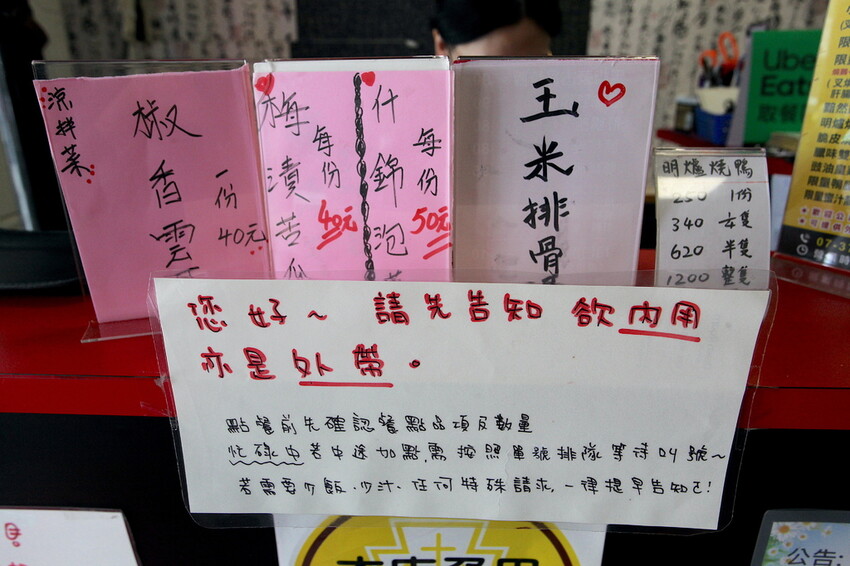 涼拌菜
椒香雲
一份
40元
梅漬苦瓜
每份
40元
什錦泡
每份
50元
玉米排骨
明爐燒鴨
250 1份
340 ¼隻
620 半隻
1200 整隻
Uber
Eats
取餐
您好~ 請先告知 欲內用
亦是外帶。
點餐前先確認餐點品項及數量
忙碌中若中途加點,需按照單號排隊等待叫號~
若需要少飯、少汁、任何特殊請求,一律提早告知!
公告: